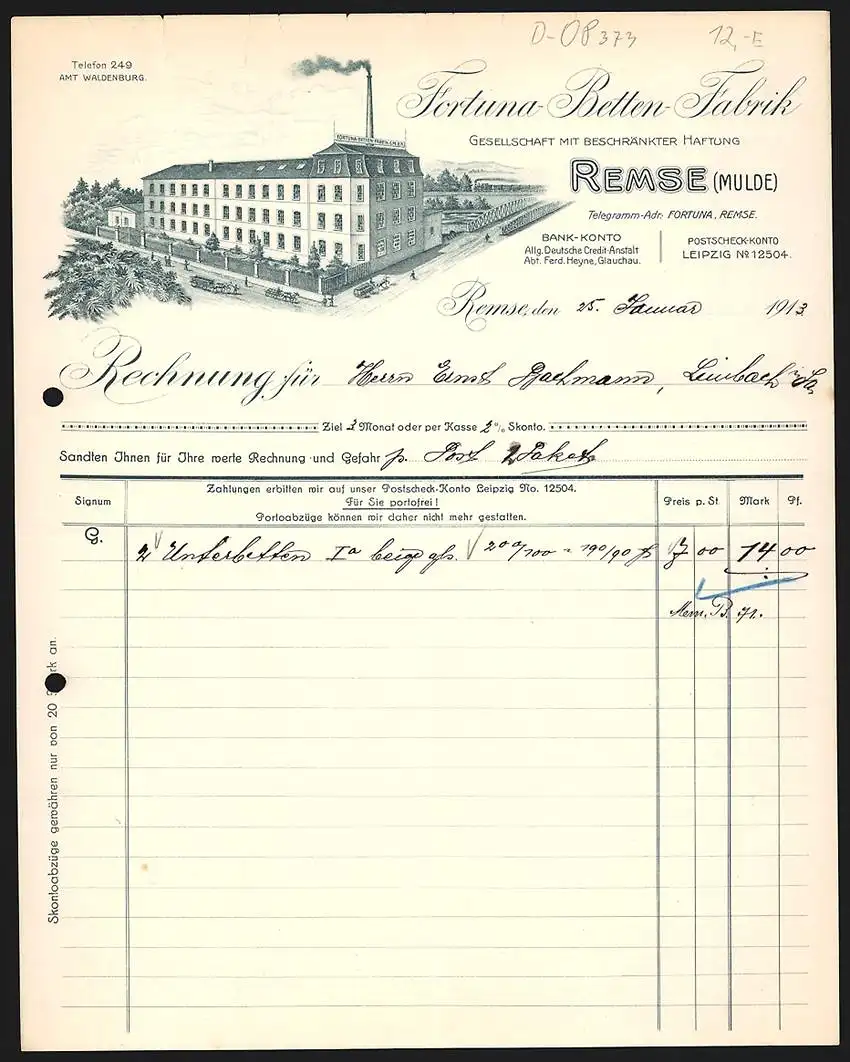 D-08373 12,-E
Telefon 249
AMT WALDENBURG.
FORTUNA-BETTEN-FABRIK G.M.B.H.
Fortuna-Betten-Fabrik
GESELLSCHAFT MIT BESCHRÄNKTER HAFTUNG
REMSE (MULDE)
Telegramm-Adr: FORTUNA, REMSE.
BANK-KONTO
Allg. Deutsche Credit-Anstalt
Abt. Ferd. Heyne, Glauchau.
POSTSCHECK-KONTO
LEIPZIG No 12504.
Remse, den 25. Januar 1913.
Rechnung für Herrn Ernst Bachmann, Limbach i/Sa.
Ziel 3 Monat oder per Kasse 2% Skonto.
Sandten Ihnen für Ihre werte Rechnung und Gefahr p. Post 2 Pakete
Signum
Zahlungen erbitten wir auf unser Postscheck-Konto Leipzig No. 12504.
Für Sie portofrei!
Portoabzüge können wir daher nicht mehr gestatten.
Preis p. St. Mark Pf.
G. 2 Unterbetten Ia beige 200/100 = 190/90 7 00 14 00
Mem. B. 71.
Skontoabzüge gewähren nur von 20 Mark an.